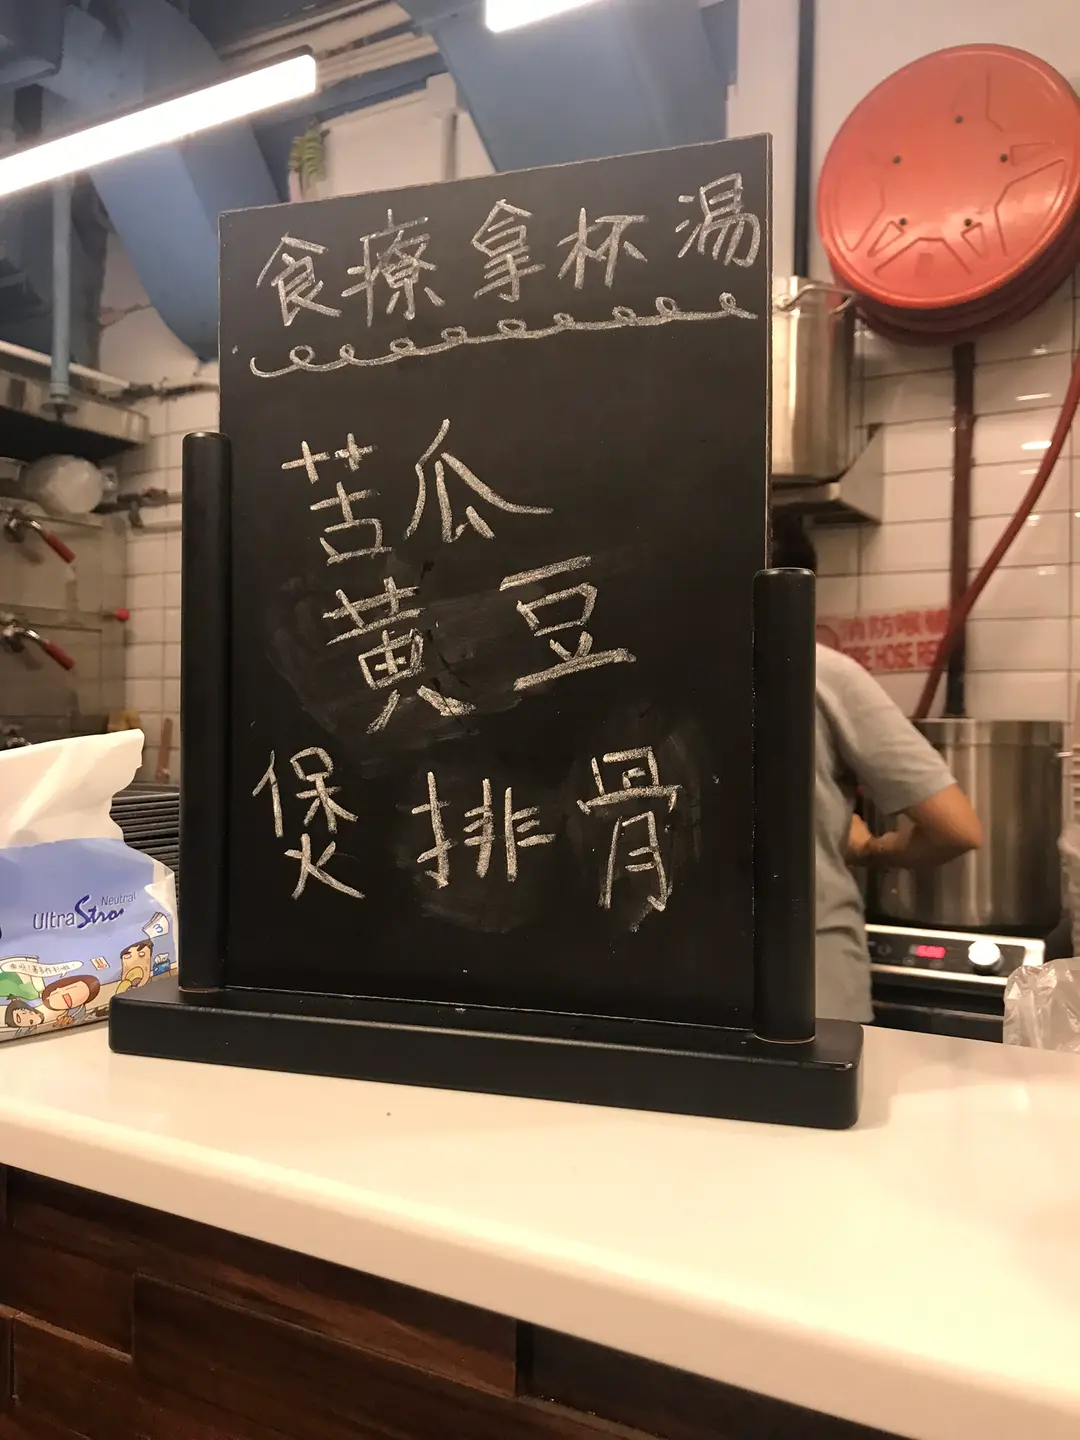 食療拿杯湯
苦瓜
黃豆
煲排骨
消防喉轆
FIRE HOSE RE
Neutral
Ultra Strong
3